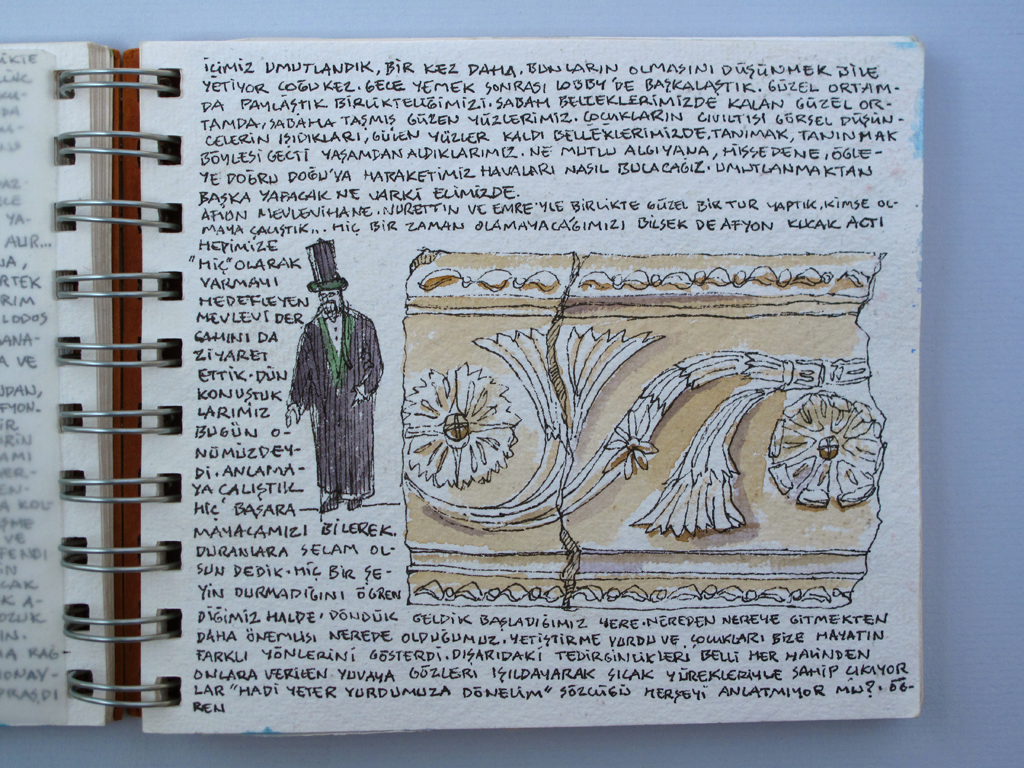 İÇİMİZ UMUTLANDIK, BİR KEZ DAHA. BUNLARIN OLMASINI DÜŞÜNMEK BİLE
YETİYOR ÇOĞU KEZ. GECE YEMEK SONRASI LOBBY'DE BAŞKALAŞTIK. GÜZEL ORTAM-
DA PAYLAŞTIK BİRLİKTELİĞİMİZİ. SABAH BELLEKLERİMİZDE KALAN GÜZEL OR-
TAMDA, SABAHA TAŞMIŞ GÜZEN YÜZLERİMİZ. ÇOCUKLARIN CIVILTISI GÖRSEL DÜŞÜN-
CELERİN IŞIDIKLARI, GÜLEN YÜZLER KALDI BELLEKLERİMİZDE, TANIMAK, TANINMAK
BÖYLESİ GEÇTİ YAŞAMDAN ALDIKLARIMIZ. NE MUTLU ALGIYANA, HİSSEDENE, ÖĞLE-
YE DOĞRU DOĞU'YA HARAKETİMİZ HAVALARI NASIL BULACAĞIZ. UMUTLANMAKTAN
BAŞKA YAPACAK NE VARKİ ELİMİZDE.
AFYON MEVLEVİHANE. NURETTİN VE EMRE'YLE BİRLİKTE GÜZEL BİR TUR YAPTIK, KİMSE OL-
MAYA ÇALIŞTIK... HİÇ BİR ZAMAN OLAMAYACAĞIMIZI BİLSEK DE AFYON KUCAK AÇTI
HEPİMİZE
"HİÇ" OLARAK
VARMAYI
HEDEFLEYEN
MEVLEVİ DER
GAHINI DA
ZİYARET
ETTİK. DÜN
KONUŞTUK
LARIMIZ
BUGÜN Ö-
NÜMÜZDEY-
Dİ. ANLAMA-
YA ÇALIŞTIK
HİÇ BAŞARA
MAYACAMIZI BİLEREK.
DURANLARA SELAM OL-
SUN DEDİK. HİÇ BİR ŞE-
YİN DURMADIĞINI ÖĞREN
DİĞİMİZ HALDE. DÖNDÜK GELDİK BAŞLADIĞIMIZ YERE. NEREDEN NEREYE GİTMEKTEN
DAHA ÖNEMLİSİ NEREDE OLDUĞUMUZ. YETİŞTİRME YURDU VE, ÇOCUKLARI BİZE HAYATIN
FARKLI YÖNLERİNİ GÖSTERDİ. DIŞARIDAKİ TEDİRGİNLİKLERİ BELLİ HER HALİNDEN
ONLARA VERİLEN YUVAYA GÖZLERİ IŞILDAYARAK SICAK YÜREKLERİYLE SAHİP ÇIKIYOR
LAR "HADİ YETER YURDUMUZA DÖNELİM" SÖZCÜĞÜ HERŞEYİ ANLATMIYOR MU?. ÖĞ-
REN